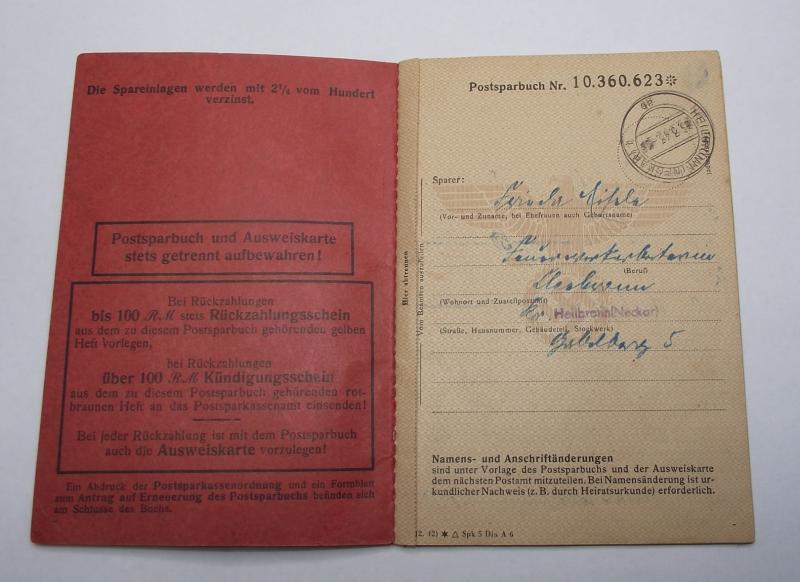 Die Spareinlagen werden mit 2¼ vom Hundert
verzinst.
Postsparbuch und Ausweiskarte
stets getrennt aufbewahren!
Bei Rückzahlungen
bis 100 RM stets Rückzahlungsschein
aus dem zu diesem Postsparbuch gehörenden gelben
Heft vorlegen,
bei Rückzahlungen
über 100 RM Kündigungsschein
aus dem zu diesem Postsparbuch gehörenden rot-
braunen Heft an das Postsparkassenamt einsenden!
Bei jeder Rückzahlung ist mit dem Postsparbuch
auch die Ausweiskarte vorzulegen!
Ein Abdruck der Postsparkassenordnung und ein Formblatt
zum Antrag auf Erneuerung des Postsparbuchs befinden sich
am Schlusse des Buchs.
Hier abtrennen
Vom Beamten auszufüllen
Postsparbuch Nr. 10.360.623*
HEILBRONN (NECKAR)
Sparer:
Frieda
(Vor- und Zuname, bei Ehefrauen auch Geburtsname)
(Beruf)
(Wohnort und Zustellpostamt)
Heilbronn(Neckar)
(Straße, Hausnummer, Gebäudeteil, Stockwerk)
5
Namens- und Anschriftänderungen
sind unter Vorlage des Postsparbuchs und der Ausweiskarte
dem nächsten Postamt mitzuteilen. Bei Namensänderung ist ur-
kundlicher Nachweis (z. B. durch Heiratsurkunde) erforderlich.
(2. 42) * △ Spk 5 Din A 6